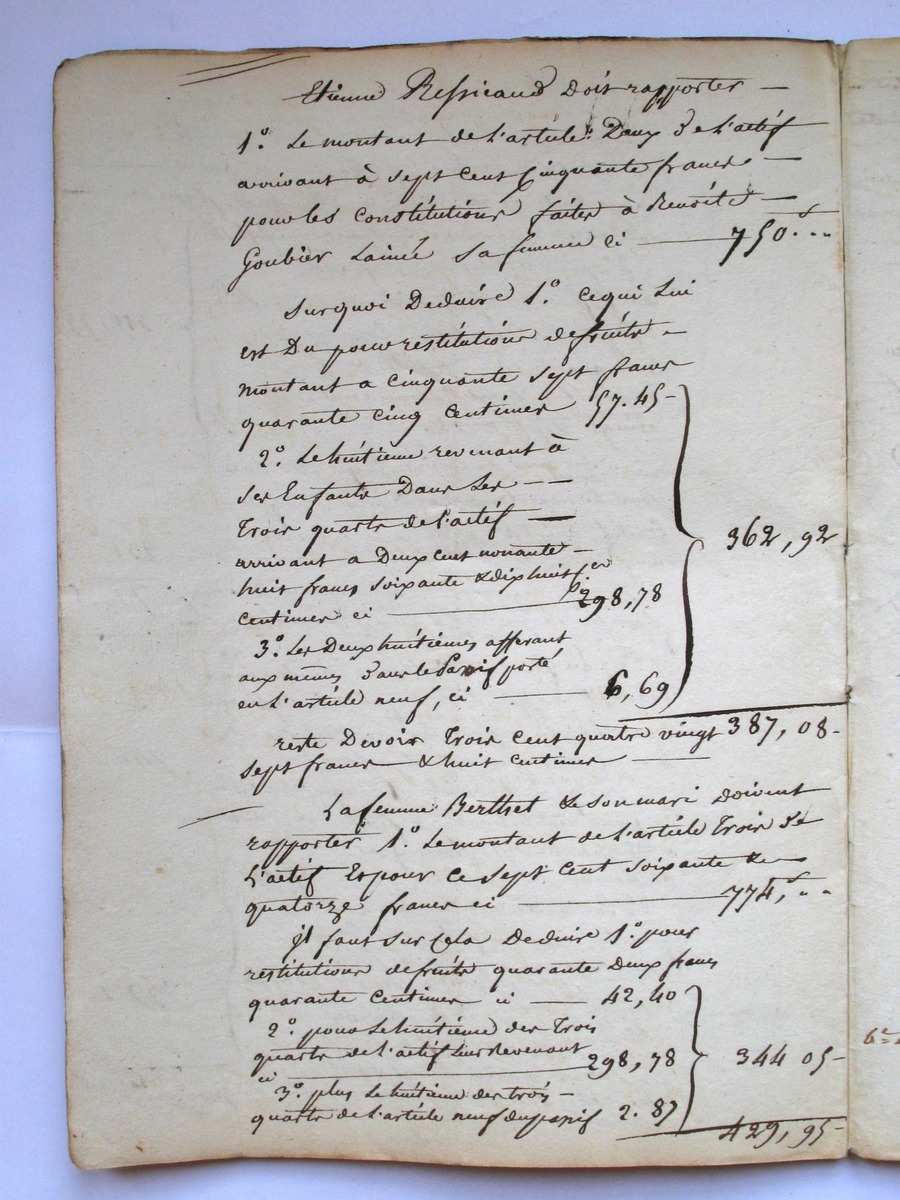 Etienne Ressicaud doit rapporter —
1º. Le montant de l'article Deux de l'actif
arrivant à sept cent cinquante francs —
pour les constitutions faites à
Goubier Lainé sa femme ci — 750 . . .
Surquoi Deduire 1º. ce qui Lui
est Du pour restitutions de fruits —
montant a cinquante sept francs
quarante cinq centimes 57.45 —
2º. Le huitieme revenant à
ses Enfants Dans Les — —
Trois quarts de l'actif —
arrivant a Deux cent nonante —
huit francs soixante & dix huit
centimes ci — 298,78
362,92
3º. Les Deux huitiemes afferant
aux mêmes dans le Passif porté
en l'article neuf, ci — 6,69
reste Devoir Trois cent quatre vingt 387,08 -
sept francs & huit centimes —
La femme Berthet & son mari doivent
rapporter 1º. Le montant de l'article Trois de
L'actif Et pour ce sept cent soixante &
quatorze francs ci — 774, . .
il faut sur cela Deduire 1º. pour
restitutions de fruits quarante Deux francs
quarante centimes ci — 42,40
2º. pour Le huitieme des Trois
quarts de l'actif leur Revenant
ci — 298,78
344 05 -
3º. plus Le huitieme des trois —
quarts de l'article neuf du passif 2.87
429,95 -